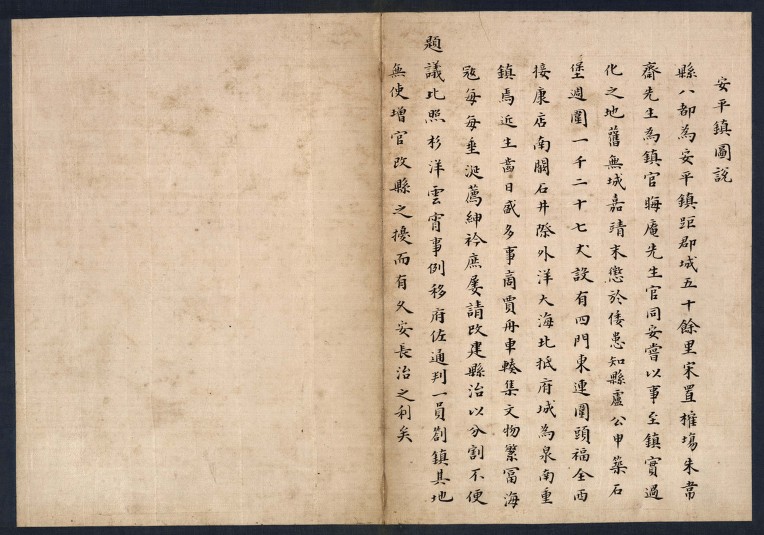 安平鎮圖說
縣八都為安平鎮距郡城五十餘里宋置榷場朱韋
齋先生為鎮官晦庵先生官同安嘗以事至鎮實過
化之地舊無城嘉靖末懲於倭患知縣盧公申築石
堡週圍一千二十七丈設有四門東連圍頭福全西
接康店南關石井際外洋大海北抵府城為泉南重
鎮焉近生齒日盛多事商賈舟車輳集文物繁冨海
寇每每垂涎薦紳衿庶屢請改建縣治以分割不便
題議比照杉洋雲霄事例移府佐通判一員劄鎮其地
無使增官改縣之擾而有久安長治之利矣